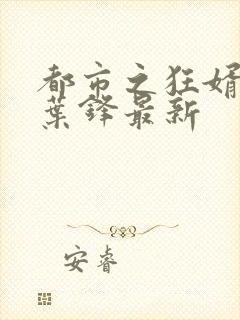 都市之狂婿
葉鋒最新
安睿